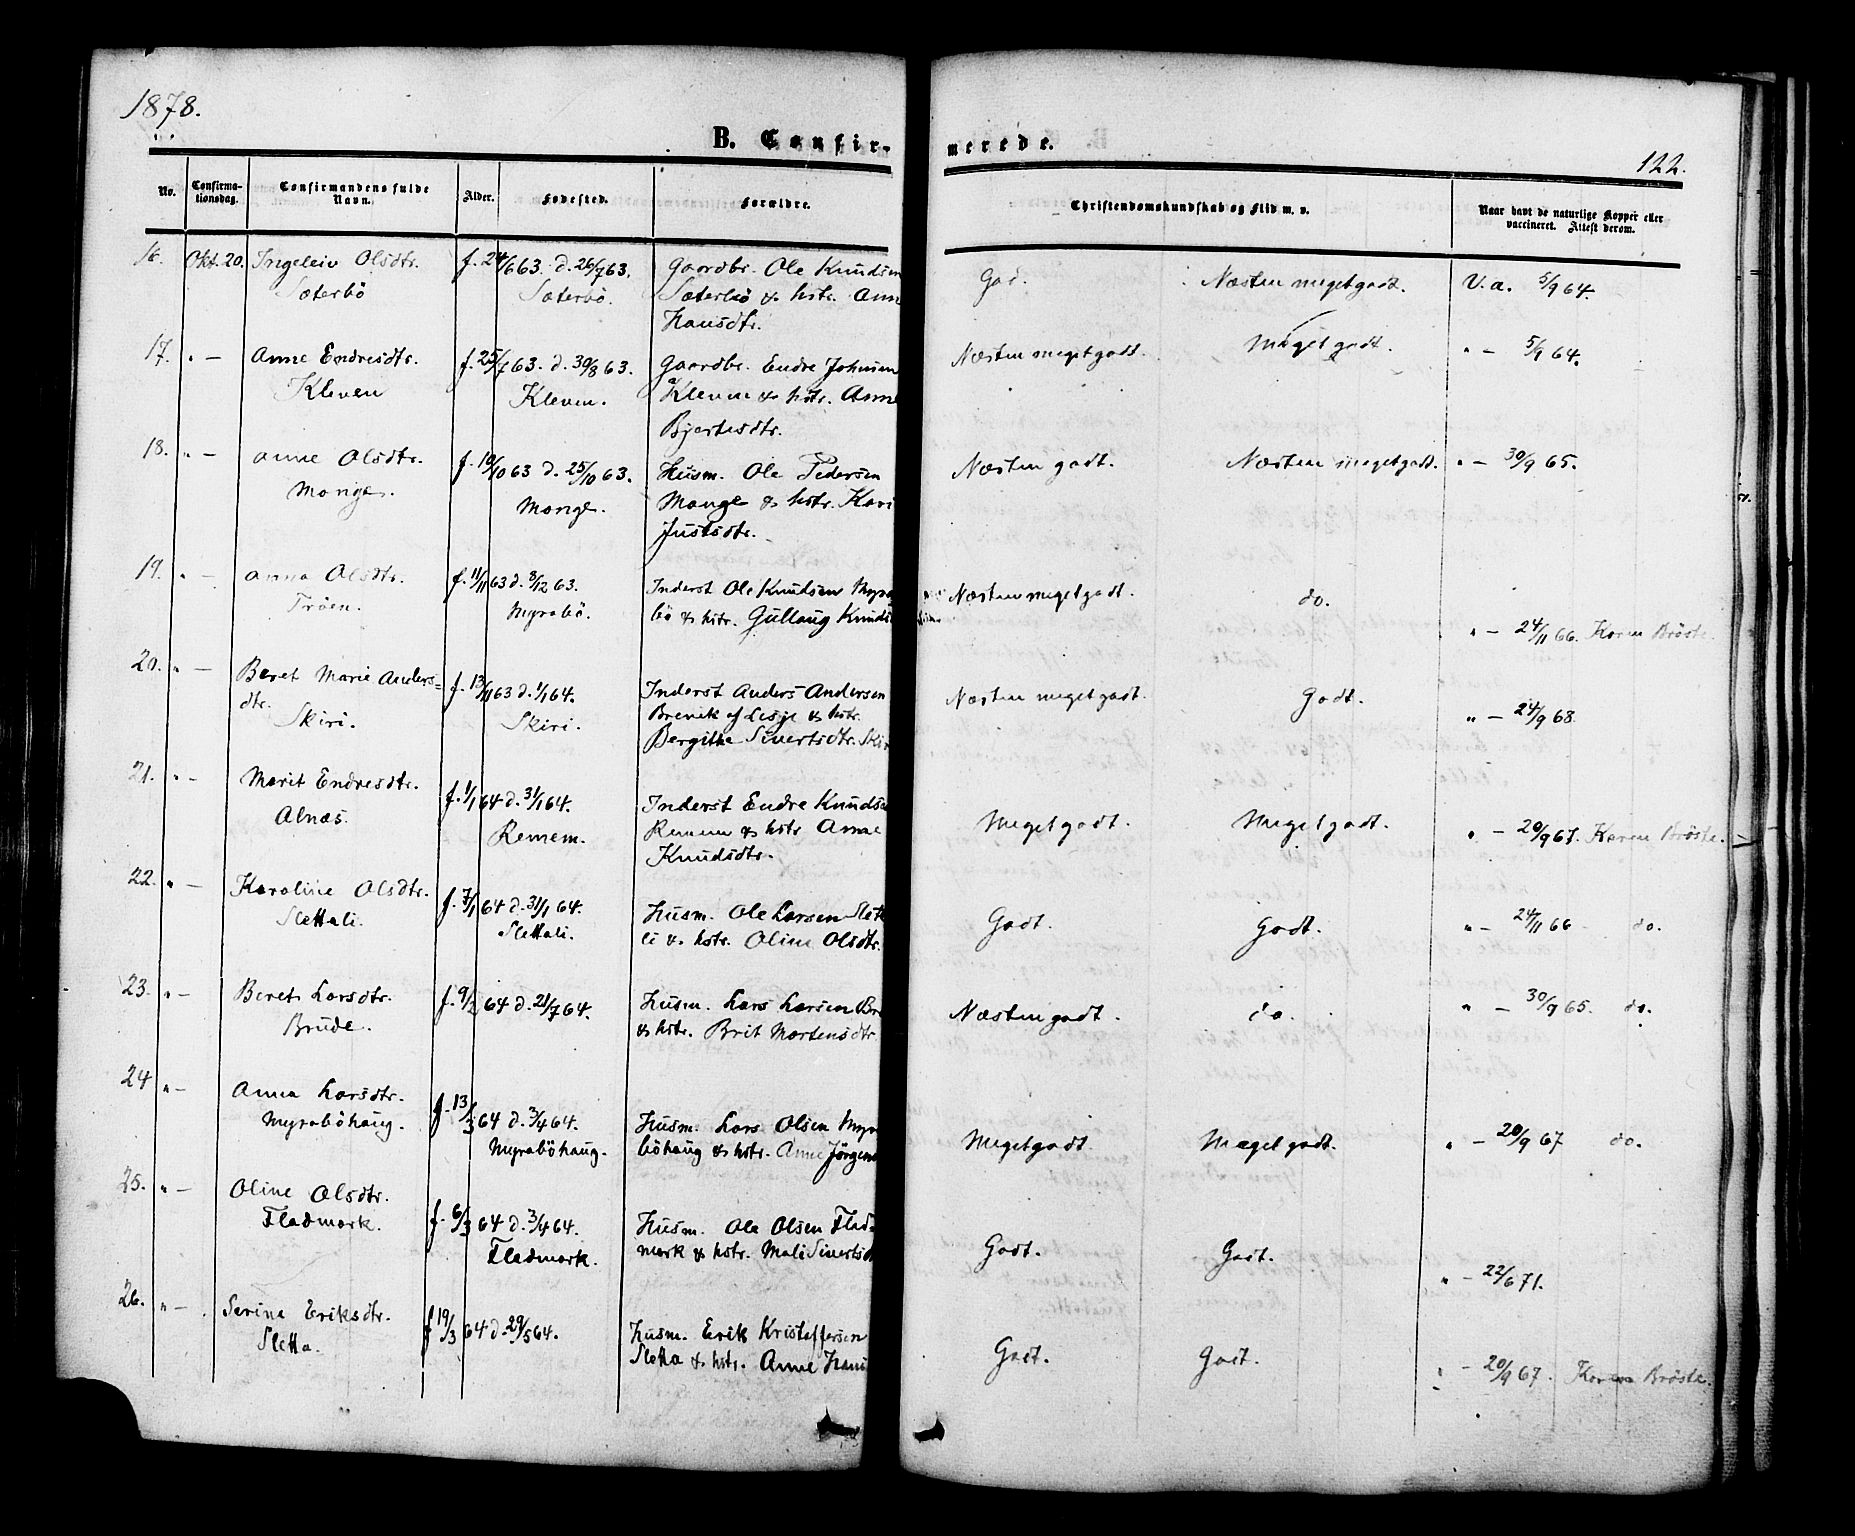 1878.
B. Confir-
merede.
122.
No.
Confirma-
tionsdag.
Confirmandens fulde
Navn.
Alder.
Fødested.
Forældre.
Christendomskundskab og Flid m. v.
Naar havt de naturlige Kopper eller
vaccineret. Attest derom.
16. Okt. 20. Ingeleiv Olsdtr. f. 24/6 63. d. 26/7 63. Gaardbr. Ole Knudsen God. Næsten megetgodt. V. a. 5/9 64.
Sæterbö Sæterbö. Sæterbö & hstr. Anne
Hansdtr.
17. " — Anne Endresdtr. f. 25/7 63. d. 30/8 63. Gaardbr. Endre Johnsen Næsten megetgodt. Megetgodt. " — 5/9 64.
Kleven Kleven. Kleven & hstr. Anne
Bjertesdtr.
18. " — Anne Olsdtr. f. 10/10 63 d. 25/10 63. Husm. Ole Pedersen Næsten godt. Næsten megetgodt. " — 30/9 65.
Monge. Monge. Monge & hstr. Kari
Justsdtr.
19. " — Anna Olsdtr. f. 11/11 63 d. 8/12 63. Inderst Ole Knudsen Myra Næsten megetgodt. do.
Tröen. Myrabö. bö & hstr. Gullaug Knuds
" — 24/11 66. Karen Bröste.
20. " — Beret Marie Anders= f. 13/11 63 d. 1/1 64. Inderst Anders Andersen Næsten megetgodt. Godt. " — 24/9 68.
dtr. Skiri. Skiri. Brevik af Lesje & hstr.
Bergithe Sivertsdtr. Skiri
21. " — Marit Endresdtr. f. 1/1 64 d. 31/1 64. Inderst Endre Knudsen Megetgodt. Megetgodt. " — 20/9 67. Karen Bröste.
Alnæs. Remem. Remem & hstr Anne
Knudsdtr.
22. " — Karoline Olsdtr. f. 7/1 64 d. 31/1 64. Husm. Ole Larsen Slette Godt. Godt. " — 24/11 66 do.
Slettali. Slettali. li & hstr. Oline Olsdtr.
23. " — Beret Larsdtr. f. 9/2 64 d. 21/7 64. Husm. Lars Larsen Br Næsten godt. do. " — 30/9 65. do.
Brude. & hstr. Brit Mortensdtr
24 " — Anna Larsdtr. f. 13/3 64 d. 3/4 64. Husm. Lars Olsen Myra Megetgodt. Megetgodt. " — 20/9 67 do.
Myraböhaug. Myraböhaug. böhaug & hstr. Anne Jörgens
25. " — Oline Olsdtr. f. 6/3 64 d. 3/4 64. Husm. Ole Olsen Flad= Godt. Godt. " — 22/6 71.
Fladmark. Fladmark. mark & hstr. Mali Sivertsd
26. " — Serine Eriksdtr. f 19/3 64 d. 29/5 64. Husm. Erik Kristoffersen Godt. Godt. " — 20/9 67. Karen Bröste.
Sletta. Sletta & hstr. Anne Hans